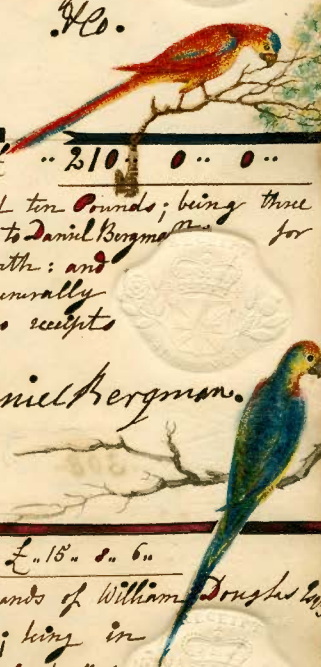 & Co.
" 210 " 0 " 0 "
ten Pounds; being three
to Daniel Bergman for
and
receipts
Daniel Bergman.
£ " 15 " 8 " 6 "
hands of William Douglas Esq
; being in